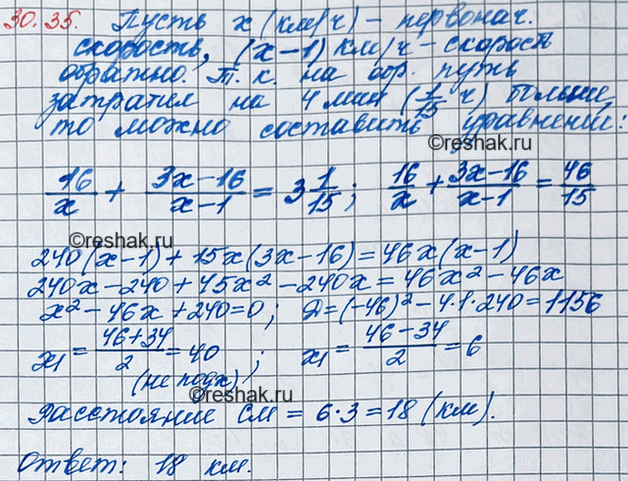 30.35. Пусть x (км/ч) – первонач.
скорость, (x–1) км/ч – скорость
обратно. Т.к. на обр. путь
затратил на 4 мин (1/15 ч) больше,
то можно составить уравнение:
©reshak.ru
16/x + 3x–16/x–1 = 3 1/15; 16/x + 3x–16/x–1 = 46/15
©reshak.ru
240(x–1) + 15x(3x–16) = 46x(x–1)
240x – 240 + 45x² – 240x = 46x² – 46x
x² – 46x + 240 = 0; Д = (–46)² – 4·1·240 = 1156
x₁ = 46+34/2 = 40; x₁ = 46–34/2 = 6
(не подх)
©reshak.ru
Расстояние СМ = 6·3 = 18 (км).
Ответ: 18 км.